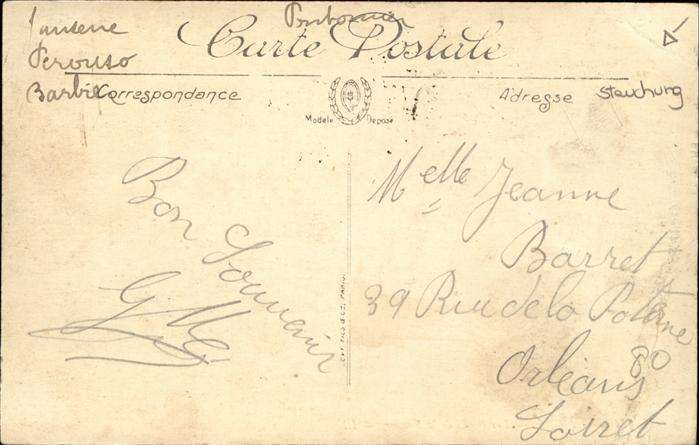 Janserie
Perouso
Barbie
Carte Postale
Correspondance
Modèle Déposé
Adresse
Bon Souvenir
Melle Jeanne
Barret
39 Rue de la Poterne
80
Orléans
Loiret